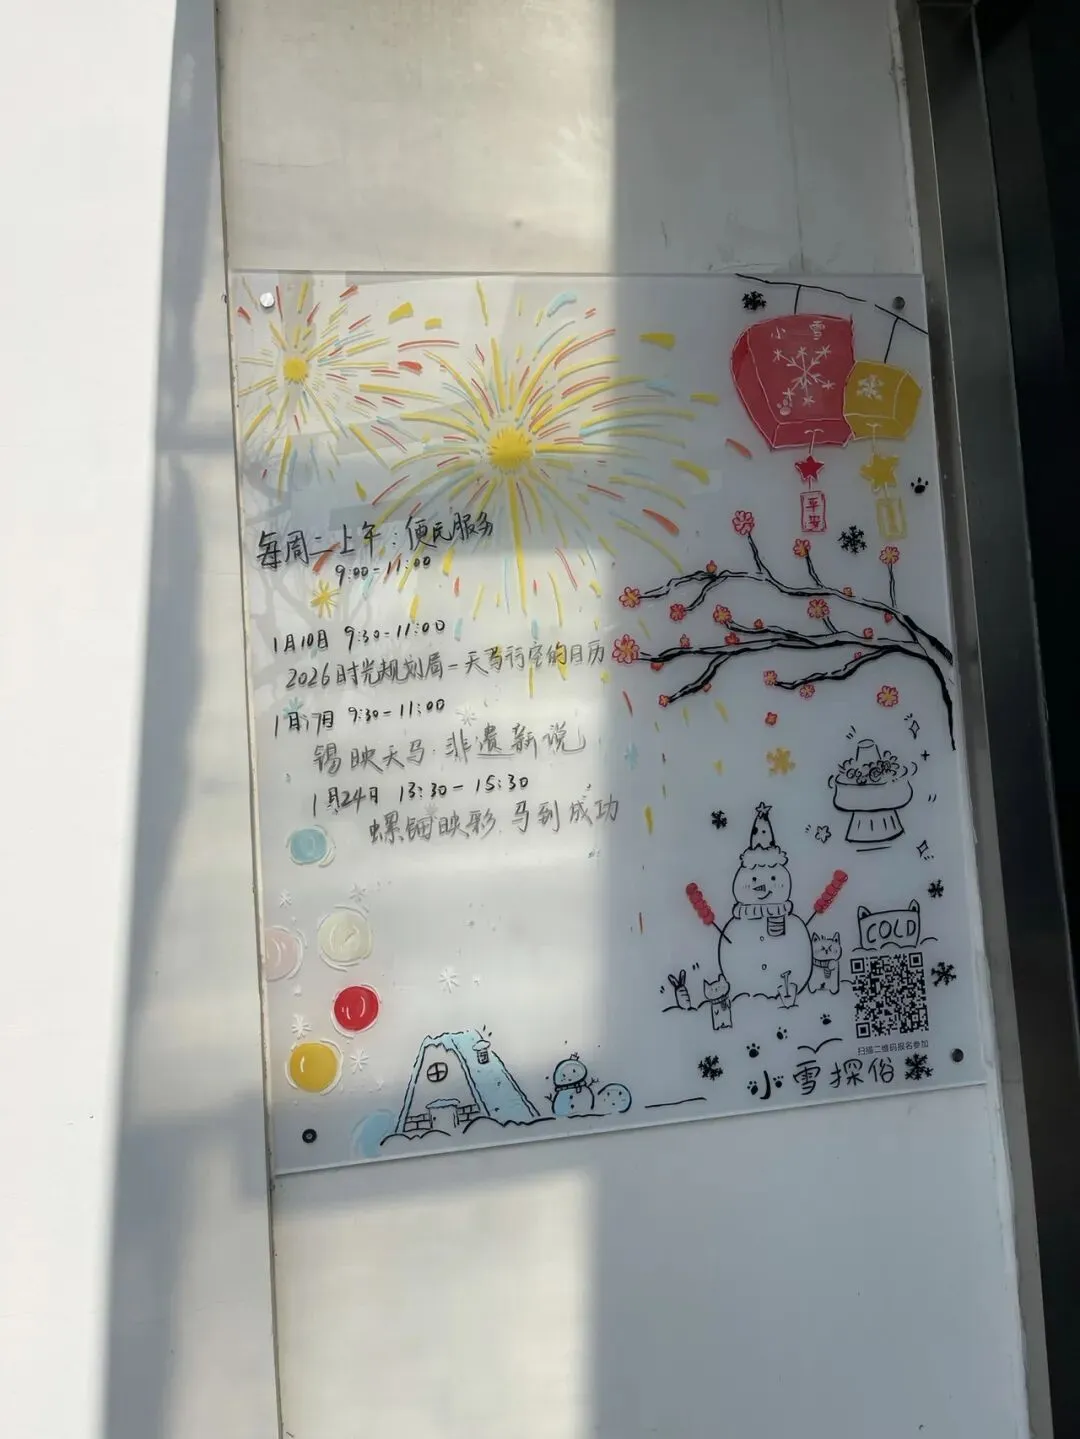 小雪
平安
每周二上午：便民服务
9:00-11:00
1月10日 9:30-11:00
2026时光规划局-天马行空的日历
1月17日 9:30-11:00
锡映天马·非遗新说
1月24日 13:30-15:30
螺钿映彩 马到成功
COLD
扫描二维码报名参加
小雪探俗